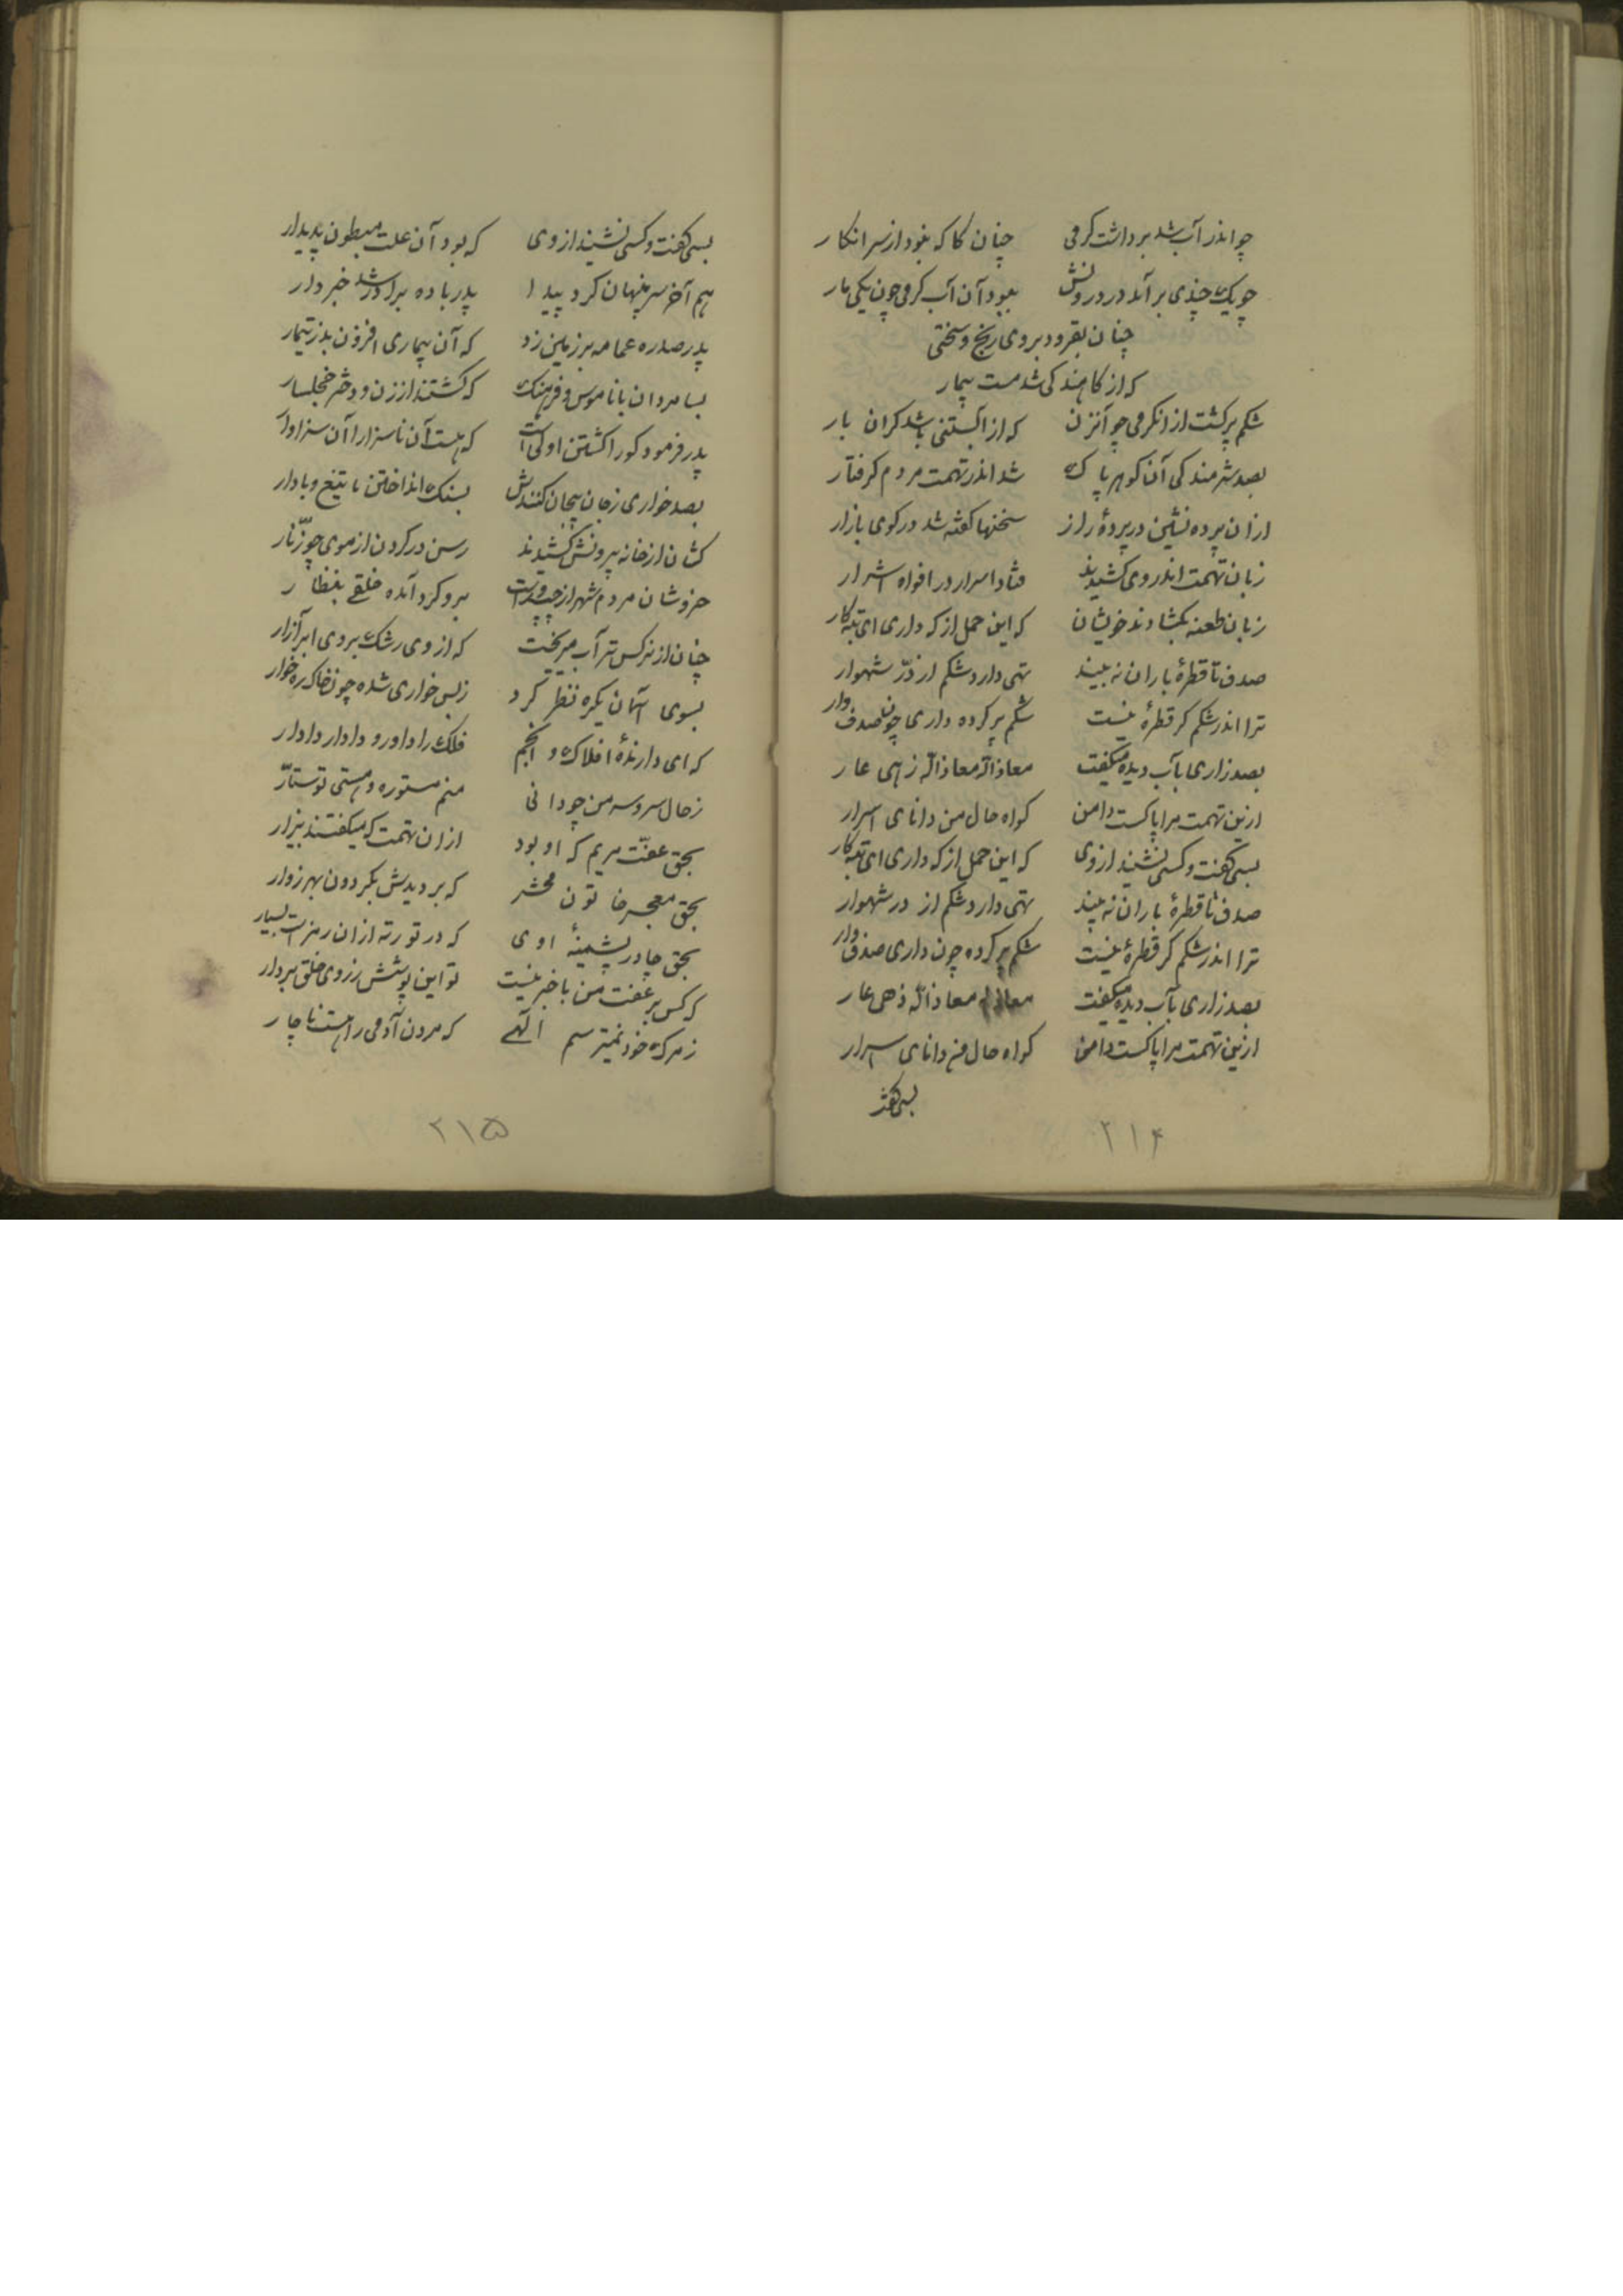 چو اندر آب شد برداشت کرمی چنان کاکه نبود از سر انکار
چو یک چندی بر آمد در درونش ببود آن آب کرمی چون یکی مار
چنان بفزود بروی رنج و سختی
که از کاهندکی شد مست بیمار
شکم پر کشت از انکرمی چو آنزن که از آبستنی باشد کران بار
بصد شرمندکی آن کوهر پاک شد اندر تهمت مردم کرفتار
ازان پرده نشین در پردهٔ راز سخنها کفته شد در کوی بازار
زبان تهمت اندر وی کشیدند فتاد اسرار در افواه اشرار
زبان طعنه بکشادند خویشان که این حمل از که داری ای تبه کار
صدف تا قطرهٔ باران نه بیند تهی دارد شکم از درّ شهوار
ترا اندر شکم کر قطرهٔ نیست شکم پر کرده داری چون صدف وار
بصد زاری بآب دیده میکفت معاذالله معاذالله زهی عار
ازین تهمت مرا پاکست دامن کواه حال من دانای اسرار
بسی کفت و کسی نشنید از وی که این حمل از که داری ای تبه کار
صدف تا قطرهٔ باران نه بیند تهی دارد شکم از در شهوار
ترا اندر شکم کر قطرهٔ نیست شکم پر کرده چون داری صدف وار
بصد زاری بآب دیده میکفت معاذالله معاذالله ذهی عار
ازین تهمت مرا پاکست دامن کواه حال من دانای اسرار
بسی کفت
۲۱۴
بسی کفت و کسی نشنید از وی که بود آن علت مبطون پدیدار
هم آخر سر پنهان کرد پیدا پدر با ده برادر شد خبردار
پدر صدره عمامه بر زمین زد که آن بیماری افزون بد ز تیمار
بسا مردان با ناموس و فرهنک که کشتند از زن و دختر خجلسار
پدر فرمود کورا کشتن اولی است که هست آن ناسزا را آن سزاوار
بصد خواری ز جان بیجان کنندش بسنک انداختن با تیغ و با دار
کشان از خانه بیرونش کشیدند رسن در کردن از موی چو زنّار
خروشان مردم شهر از چپ و راست برو کرد آمده خلقی بنظار
چنان از نرکس تر آب میریخت که از وی رشک بردی ابر آزار
بسوی آسمان یکره نظر کرد ز بس خواری شده چون خاک ره خوار
که ای دارندهٔ افلاک و انجم فلک را داور و دادار دادار
ز حال سر و سه من چو دانی منم مستوره و هستی تو ستّار
بحق عفّت مریم که او بود ازان تهمت که میکفتند بیزار
بحق معجر خاتون محشر که بر دیدش بکردون بهر زوار
بحق چادر پشمینهٔ اوی که در تو رته ازان رمزست بسیار
که کس بر عفت من باخبر نیست تو این پوشش ز روی خلق بردار
ز مرک خود نمیترسم الهی که مردن آدمی را هست ناچار
۲۱۵